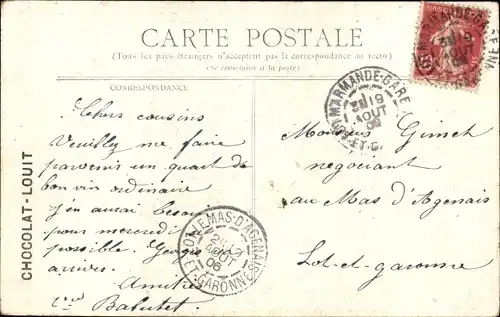 CARTE POSTALE
(Tous les pays étrangers n'acceptent pas la correspondance au recto)
(Se renseigner à la poste)
CORRESPONDANCE
CHOCOLAT-LOUIT
Chers cousins
Veuillez me faire
parvenir un quart de
bon vin ordinaire
j'en aurai besoin
pour mercredi
possible. Georges
arrive.
Amitiés
Babutet
MARMANDE-GARE
19
AOUT
LE MAS-D'AGENAIS
AOUT
06
LOT-ET-GARONNE
Monsieur Gimet
negociant
au Mas d'Agenais
Lot-et-garonne